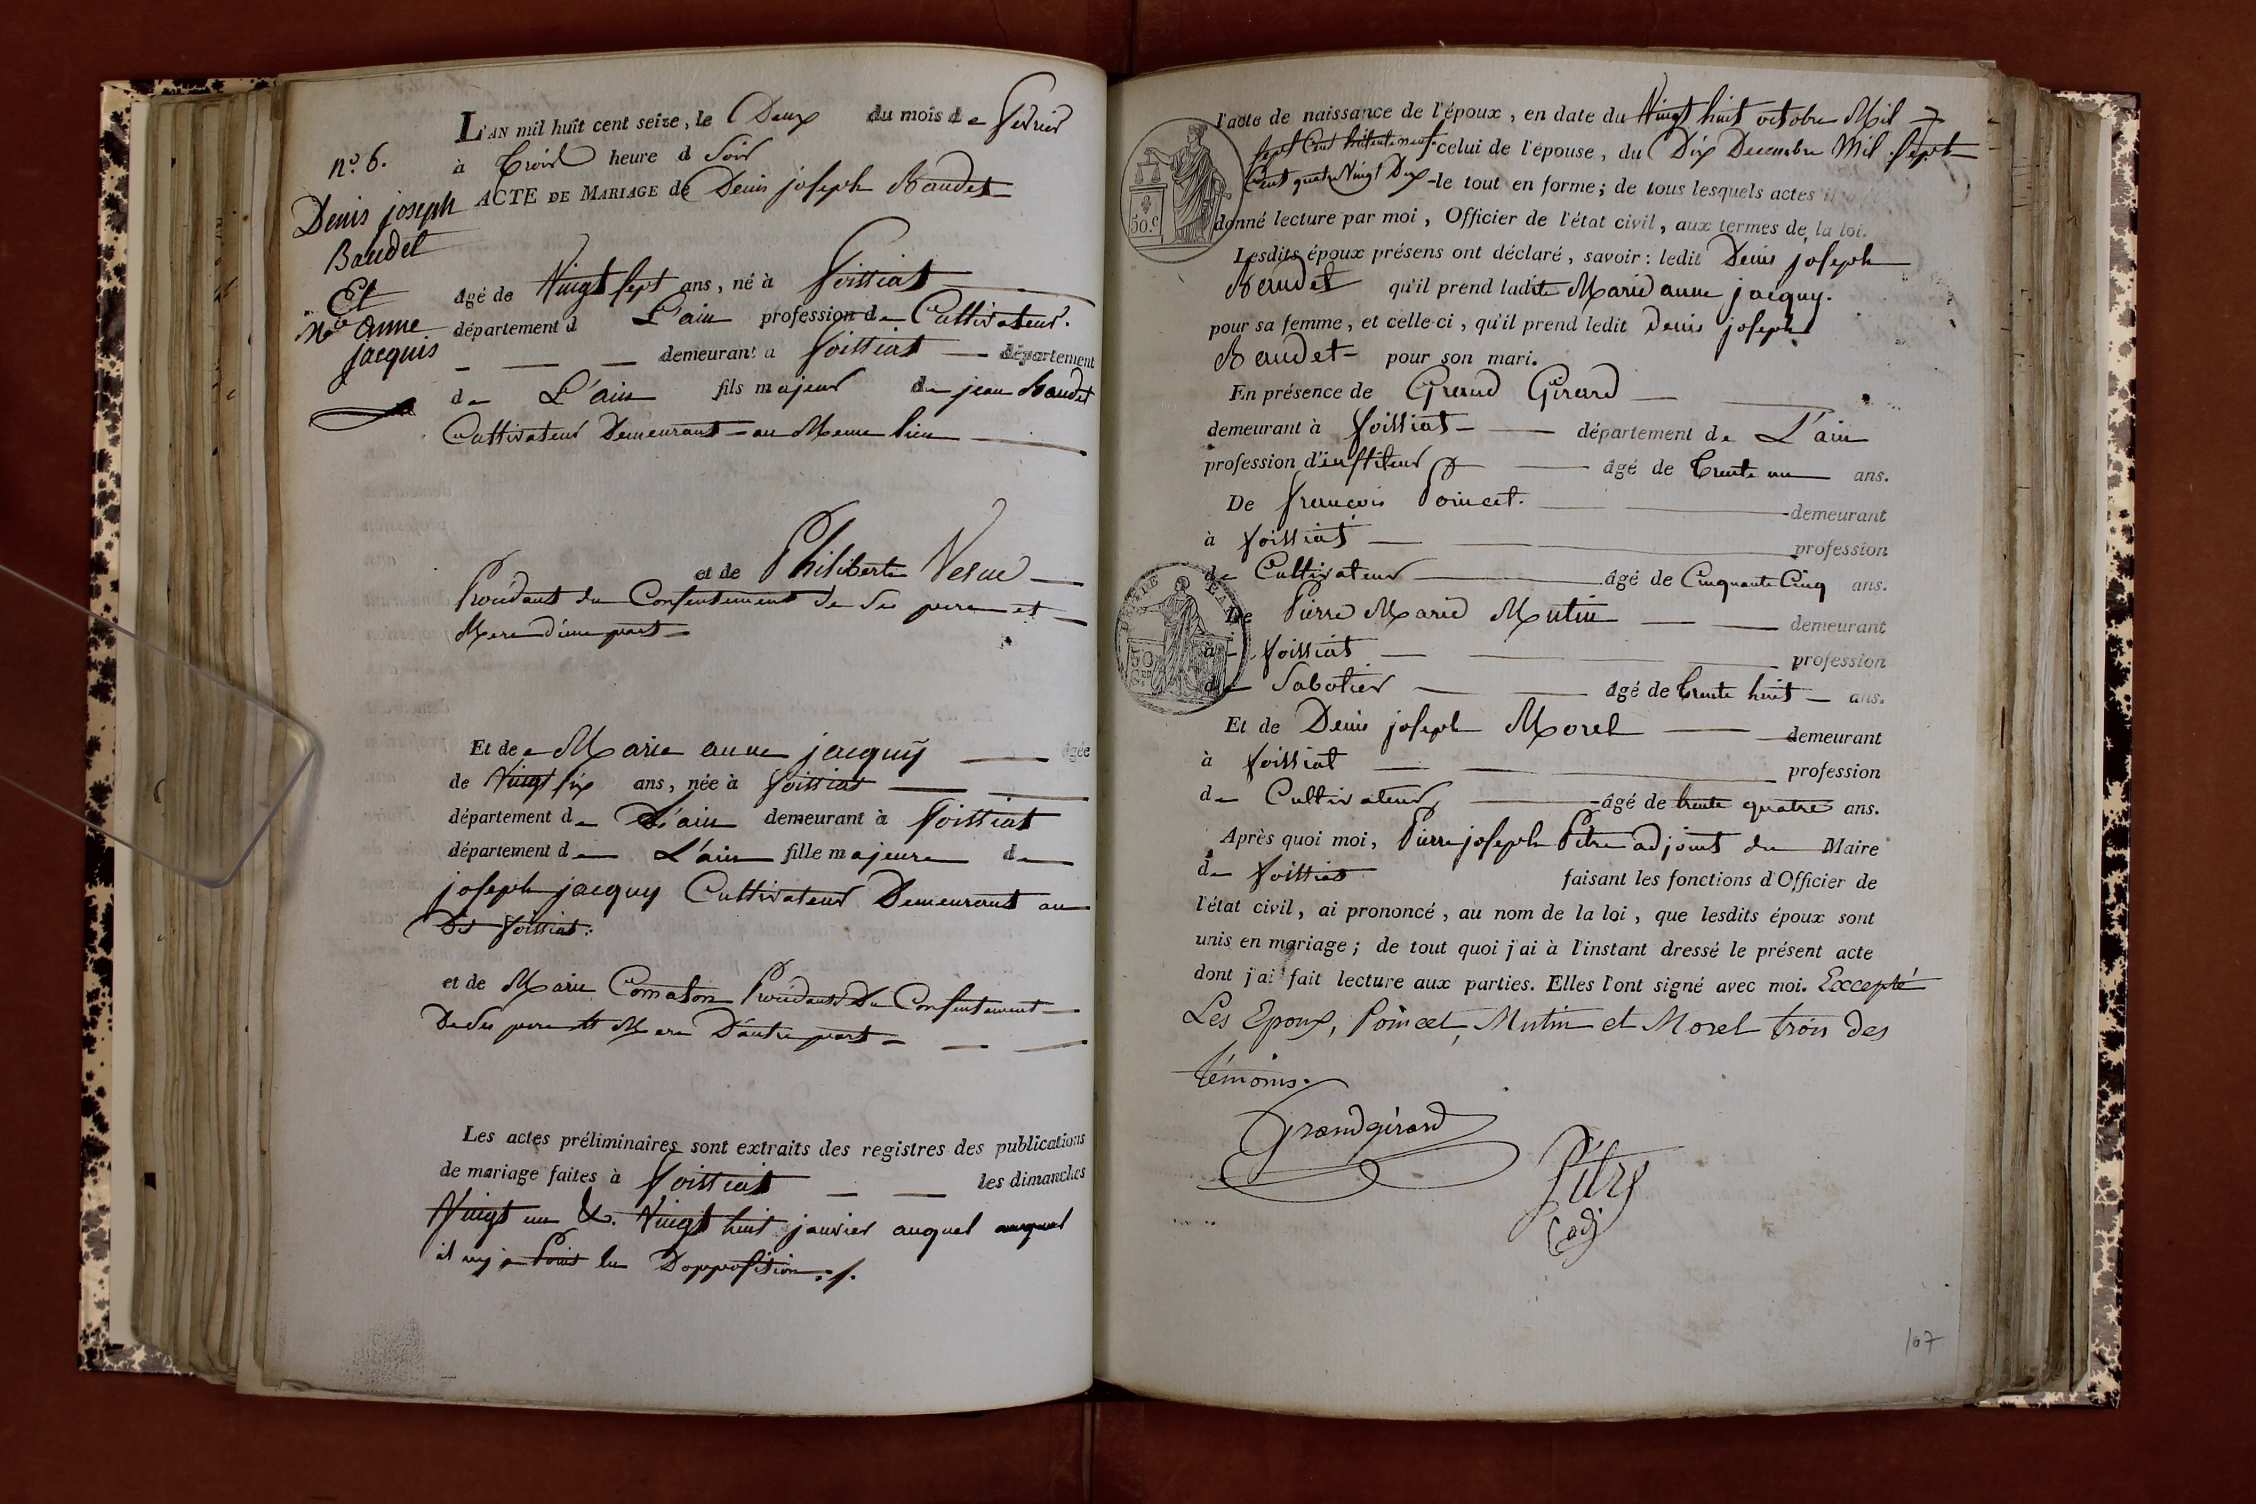 L'AN mil huit cent seize, le Deux du mois de fevrier
à Trois heure d Soir
ACTE DE MARIAGE de Denis joseph Baudet
n.° 6.
Denis joseph
Baudet
Et
M.ie Anne
Jacquis
âgé de Vingt sept ans, né à foissiat
département d L'ain profession de Cultivateur.
demeurant a foissiat département
de L'ain fils majeur de jean Baudet
Cultivateur Demeurant au Meme lieu
et de Philiberte Vesue
Procédant du Consentement de Ses pere et
Mere d'une part
Et de Marie anne jacquy âgée
de Vingt six ans, née à foissiat
département de L'ain demeurant à foissiat
département de L'ain fille majeure de
joseph jacquy Cultivateur Demeurant au
Dit foissiat.
et de Marie Comaton Procédant Du Consentement
De Ses pere et Mere D'autre part
Les actes préliminaires sont extraits des registres des publications
de mariage faites à foissiat les dimanches
Vingt un &. Vingt huit janvier auquel
il ny a Point Eu Dopposition ./.
l'acte de naissance de l'époux, en date du Vingt huit octobre Mil
sept Cent huitante neuf celui de l'épouse, du Dix Decembre Mil Sept
Cent quatre Vingt Dix le tout en forme; de tous lesquels actes il
donné lecture par moi, Officier de l'état civil, aux termes de la loi.
Lesdits époux présens ont déclaré, savoir: ledit Denis joseph
Baudet qu'il prend ladite Marie anne jacquy.
pour sa femme, et celle-ci, qu'il prend ledit Denis joseph
Baudet pour son mari.
En présence de Grand Girard
demeurant à foissiat département de L'ain
profession d'instituteur âgé de Trente un ans.
De francois Poincet. demeurant
à foissiat profession
de Cultivateur âgé de Cinquante Cinq ans.
De Pierre Marie Mutin demeurant
à foissiat profession
de Sabotier âgé de Trente huit ans.
Et de Denis joseph Morel demeurant
à foissiat profession
de Cultivateur âgé de trente quatre ans.
Après quoi moi, Pierre joseph Pitre adjoint du Maire
de foissiat faisant les fonctions d'Officier de
l'état civil, ai prononcé, au nom de la loi, que lesdits époux sont
unis en mariage; de tout quoi j'ai à l'instant dressé le présent acte
dont j'ai fait lecture aux parties. Elles l'ont signé avec moi. Excepté
Les Epoux, Poincet, Mutin et Morel trois des
témoins.
Grandgirard
Pitre
adj
50.c
50
107